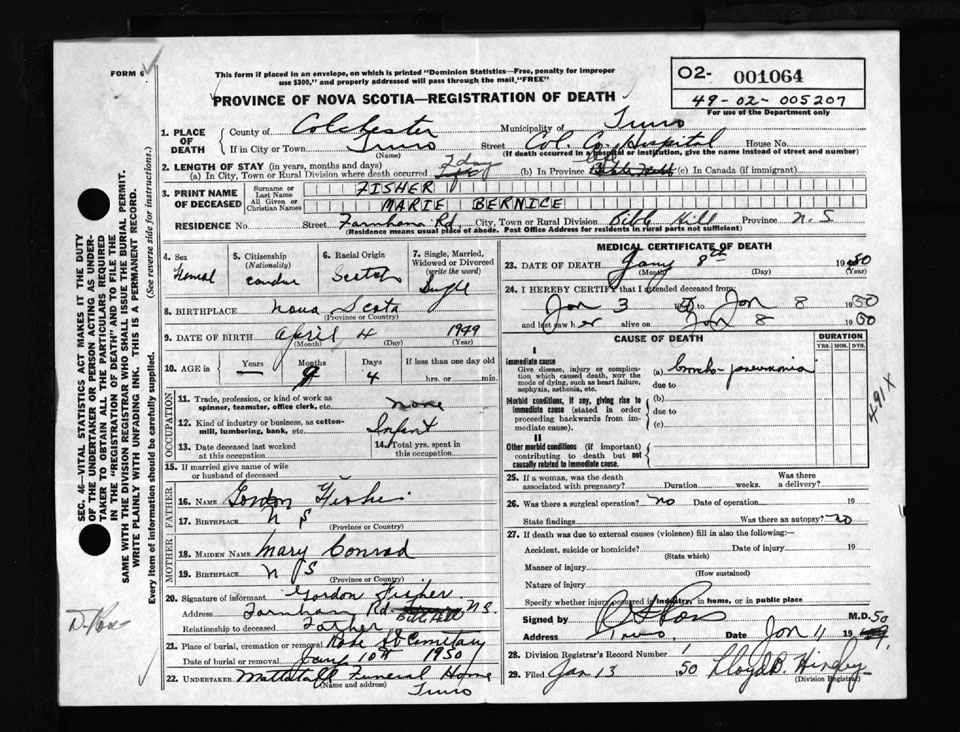 FORM 6
This form if placed in an envelope, on which is printed "Dominion Statistics—Free, penalty for improper
use $300," and properly addressed will pass through the mail, "FREE"
O2- 001064
49-02-005207
For use of the Department only
PROVINCE OF NOVA SCOTIA—REGISTRATION OF DEATH
1. PLACE OF DEATH
County of Colchester Municipality of Truro
If in City or Town Truro Street Col. Co. Hospital House No.
(Name) (If death occurred in a hospital or institution, give the name instead of street and number)
2. LENGTH OF STAY (in years, months and days)
(a) In City, Town or Rural Division where death occurred 7 day (b) In Province (c) In Canada (if immigrant)
3. PRINT NAME OF DECEASED
Surname or Last Name FISHER
All Given or Christian Names MARIE BERNICE
RESIDENCE No. Street Farnham Rd City, Town or Rural Division Bible Hill Province N.S
(Residence means usual place of abode. Post Office Address for residents in rural parts not sufficient)
4. Sex
Femal
5. Citizenship
(Nationality)
6. Racial Origin
Scotch
7. Single, Married, Widowed or Divorced
(write the word)
Single
8. BIRTHPLACE Nova Scota
(Province or Country)
9. DATE OF BIRTH April 4 1949
(Month) (Day) (Year)
10. AGE in
Years Months Days If less than one day old
— 9 4 hrs. or min.
OCCUPATION
11. Trade, profession, or kind of work as
spinner, teamster, office clerk, etc. none
12. Kind of industry or business, as cotton-
mill, lumbering, bank, etc. Infant
13. Date deceased last worked
at this occupation
14. Total yrs. spent in
this occupation
15. If married give name of wife
or husband of deceased
FATHER
16. NAME Gordon Fisher
17. BIRTHPLACE N S
(Province or Country)
MOTHER
18. MAIDEN NAME Mary Conrad
19. BIRTHPLACE N S
(Province or Country)
20. Signature of informant Gordon Fisher
Address Farnham Rd. Bible Hill N.S.
Relationship to deceased Father
21. Place of burial, cremation or removal Robe St Cemetary
Date of burial or removal Jany 10th 1950
22. UNDERTAKER Mattatall Funeral Home
(Name and address) Truro
MEDICAL CERTIFICATE OF DEATH
23. DATE OF DEATH Jany 8th 1950
(Month) (Day) (Year)
24. I HEREBY CERTIFY that I attended deceased from
Jan 3 50 to Jan 8 1950
and last saw her alive on Jan 8 1950
CAUSE OF DEATH
DURATION
YRS. MOS. DYS.
I
Immediate cause
Give disease, injury or complica-
tion which caused death, NOT the
mode of dying, such as heart failure,
asphyxia, asthenia, etc.
(a) broncho-pneumonia
due to
Morbid conditions, if any, giving rise to
immediate cause (stated in order
proceeding backwards from im-
mediate cause).
(b)
due to
(c)
II
Other morbid conditions (if important)
contributing to death but not
causally related to immediate cause.
491X
25. If a woman, was the death
associated with pregnancy? Duration weeks. Was there
a delivery?
26. Was there a surgical operation? no Date of operation 19
State findings Was there an autopsy? no
27. If death was due to external causes (violence) fill in also the following:—
Accident, suicide or homicide? Date of injury 19
(State which)
Manner of injury
(How sustained)
Nature of injury
Specify whether injury occurred in industry, in home, or in public place
Signed by M.D.
Address Truro Date Jan 11 1950
28. Division Registrar's Record Number 1
29. Filed Jan 13 50 Lloyd B. Hingley
(Division Registrar)
SEC. 46—VITAL STATISTICS ACT MAKES IT THE DUTY
OF THE UNDERTAKER OR PERSON ACTING AS UNDER-
TAKER TO OBTAIN ALL THE PARTICULARS REQUIRED
IN THE "REGISTRATION OF DEATH" AND TO FILE THE
SAME WITH THE DIVISION REGISTRAR WHO SHALL ISSUE THE BURIAL PERMIT.
WRITE PLAINLY WITH UNFADING INK. THIS IS A PERMANENT RECORD.
Every item of information should be carefully supplied. (See reverse side for instructions.)